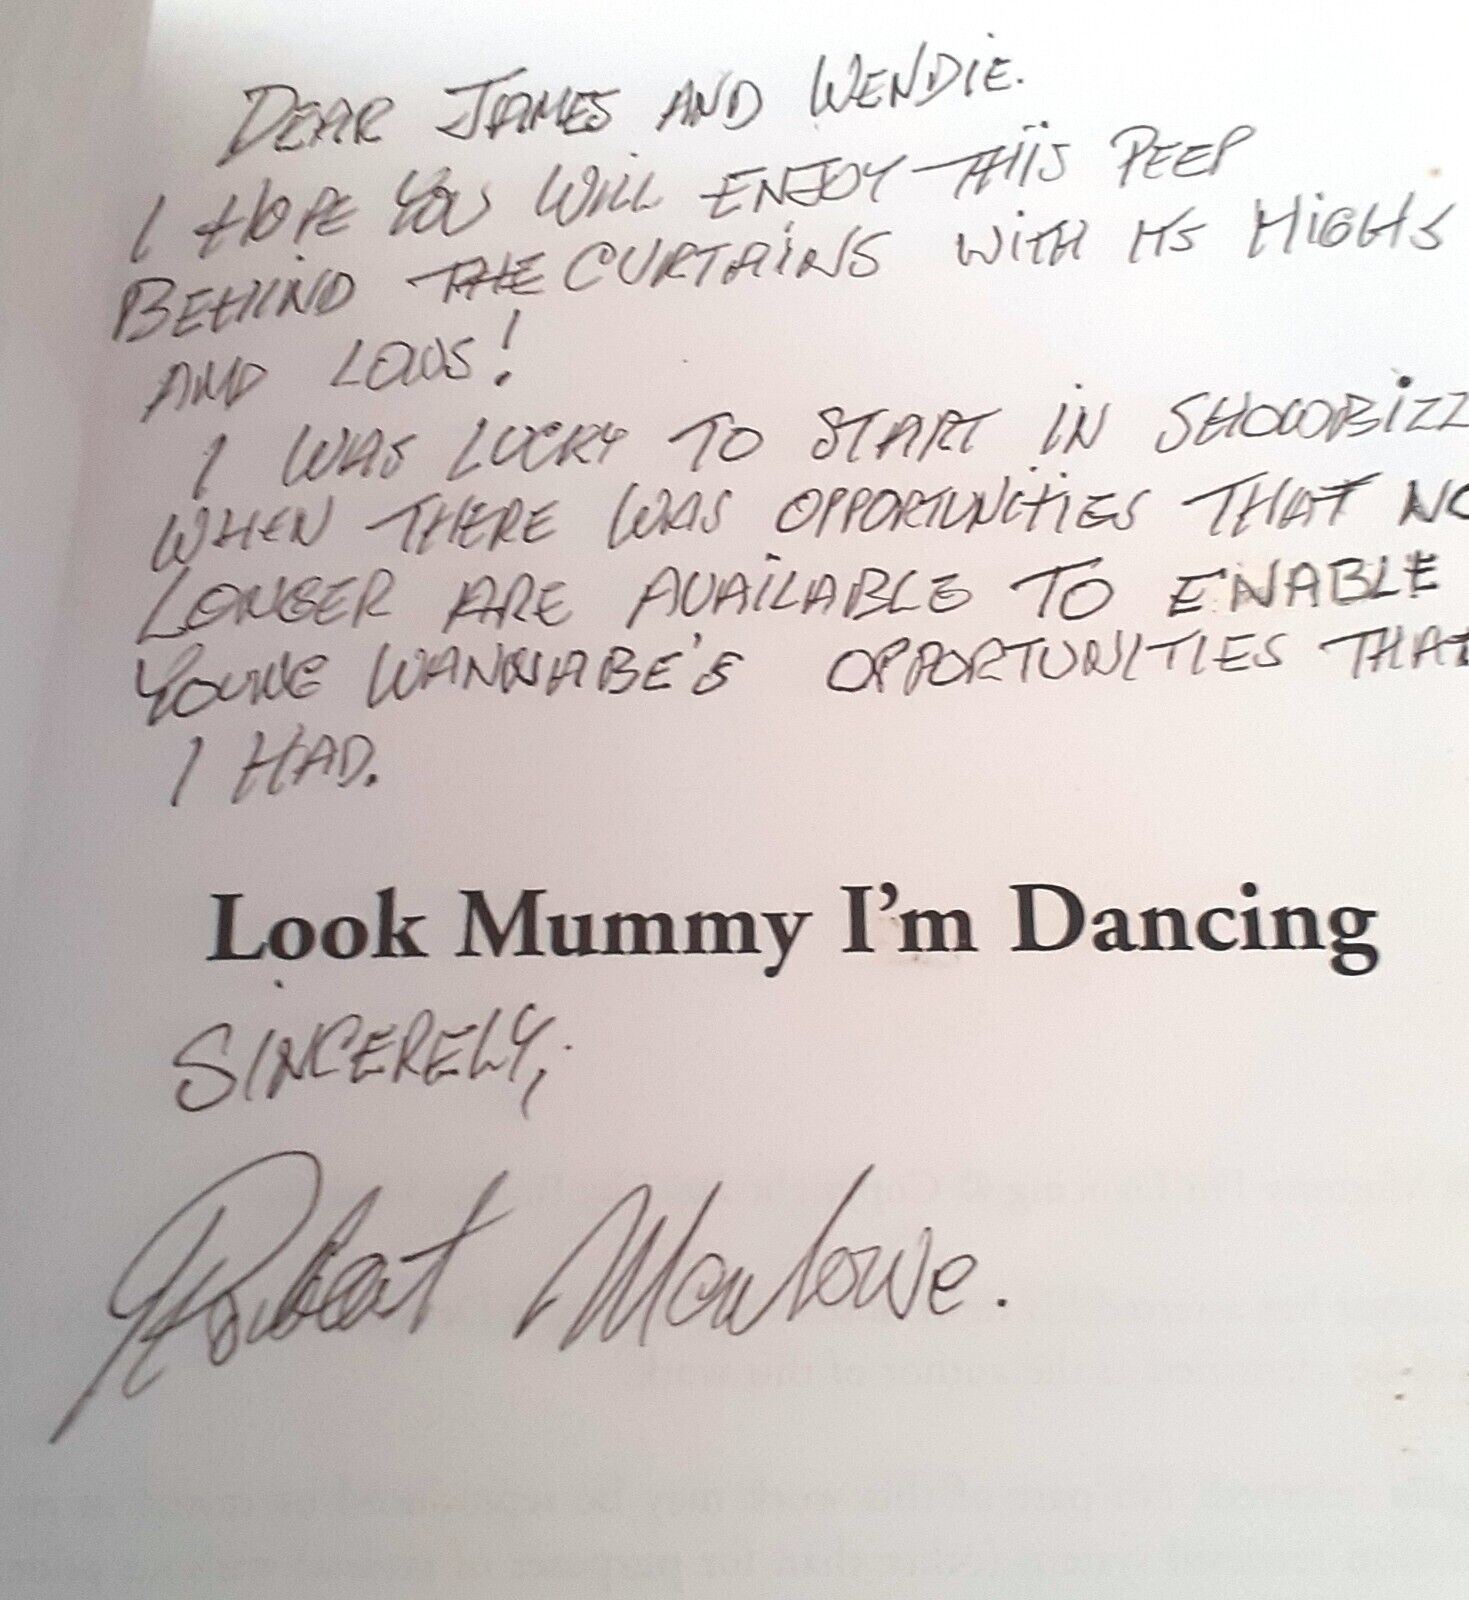 DEAR JAMES AND WENDIE.
I HOPE YOU WILL ENJOY THIS PEEP
BEHIND THE CURTAINS WITH ITS HIGHS
AND LOWS!
I WAS LUCKY TO START IN SHOWBIZZ
WHEN THERE WAS OPPORTUNITIES THAT NO
LONGER ARE AVAILABLE TO ENABLE
YOUNG WANNABE'S OPPORTUNITIES THAT
I HAD.
Look Mummy I'm Dancing
SINCERELY,
Robert Marlowe.